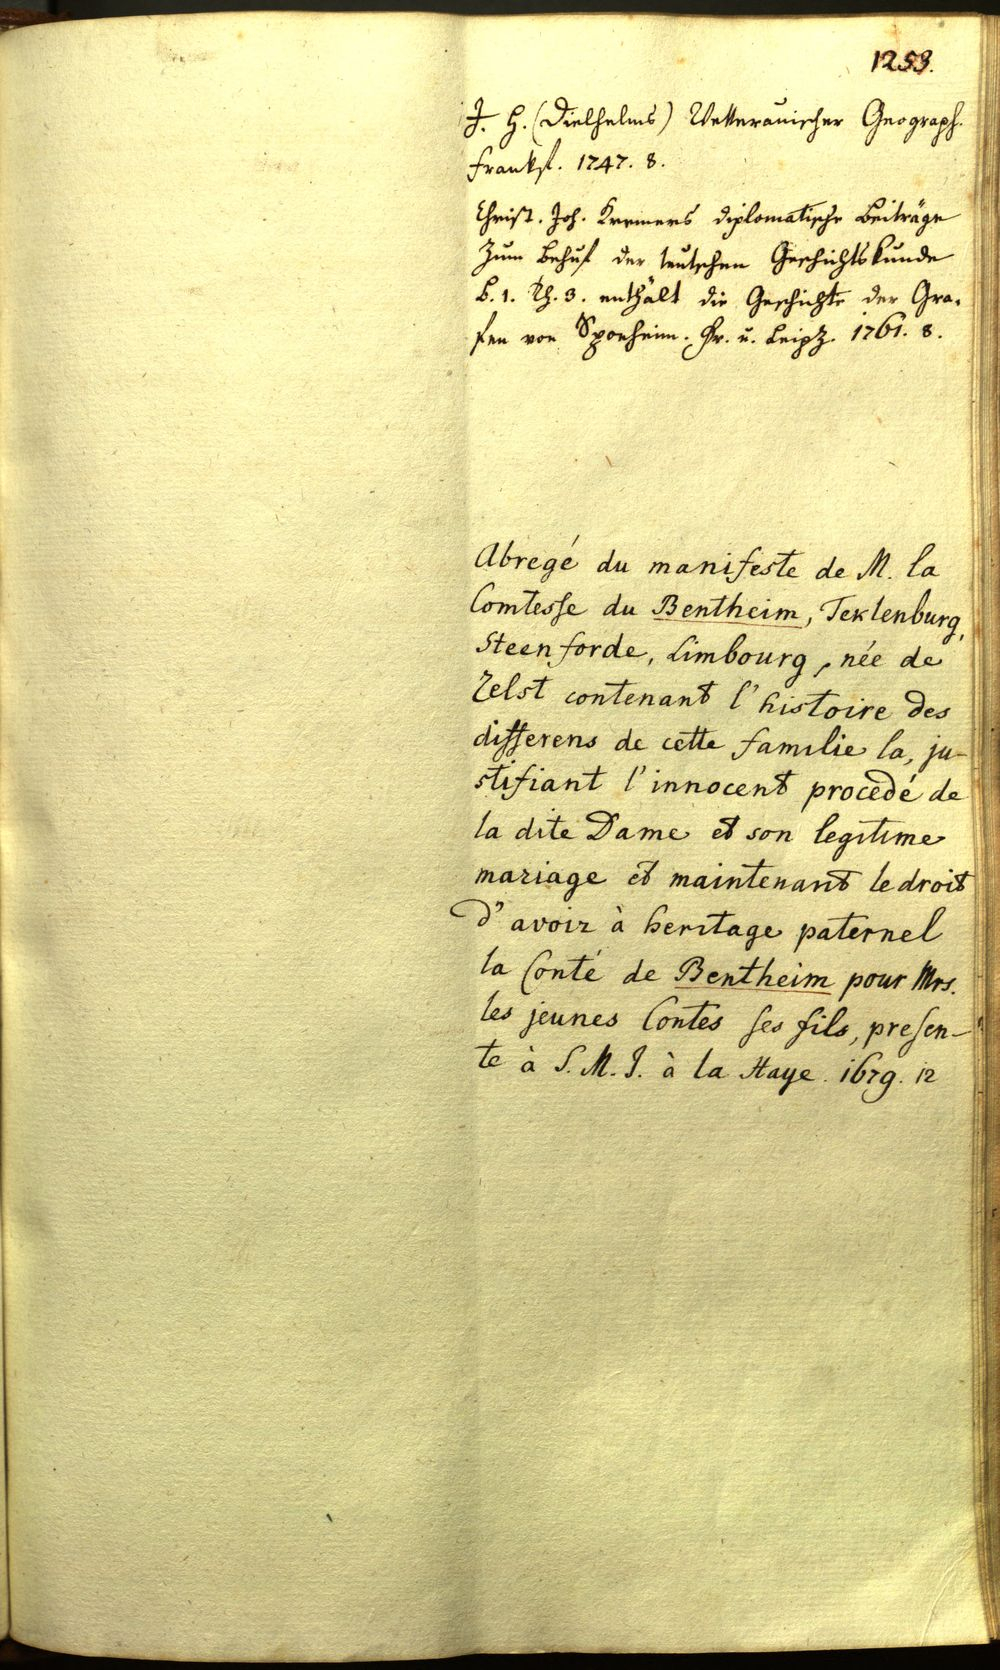 1253.
J. H. (Dielhelms) Wetterauischer Geograph.
Frankf. 1747. 8.
Christ. Joh. Kremers diplomatische Beiträge
zum Behuf der teutschen Geschichtskunde
B. 1. Th. 3. enthält die Geschichte der Gra-
fen von Sponheim. Fr. u. Leipz. 1761. 8.
Abregé du manifeste de M. la
Comtesse du Bentheim, Teklenburg,
Steenforde, Limbourg, née de
Zelst contenant l'histoire des
differens de cette familie la, ju-
stifiant l'innocent procedé de
la dite Dame et son legitime
mariage et maintenant le droit
d'avoir à heritage paternel
la Conté de Bentheim pour Mrs.
les jeunes Contes ses fils, presen-
te à S. M. I. à la Haye. 1679. 12